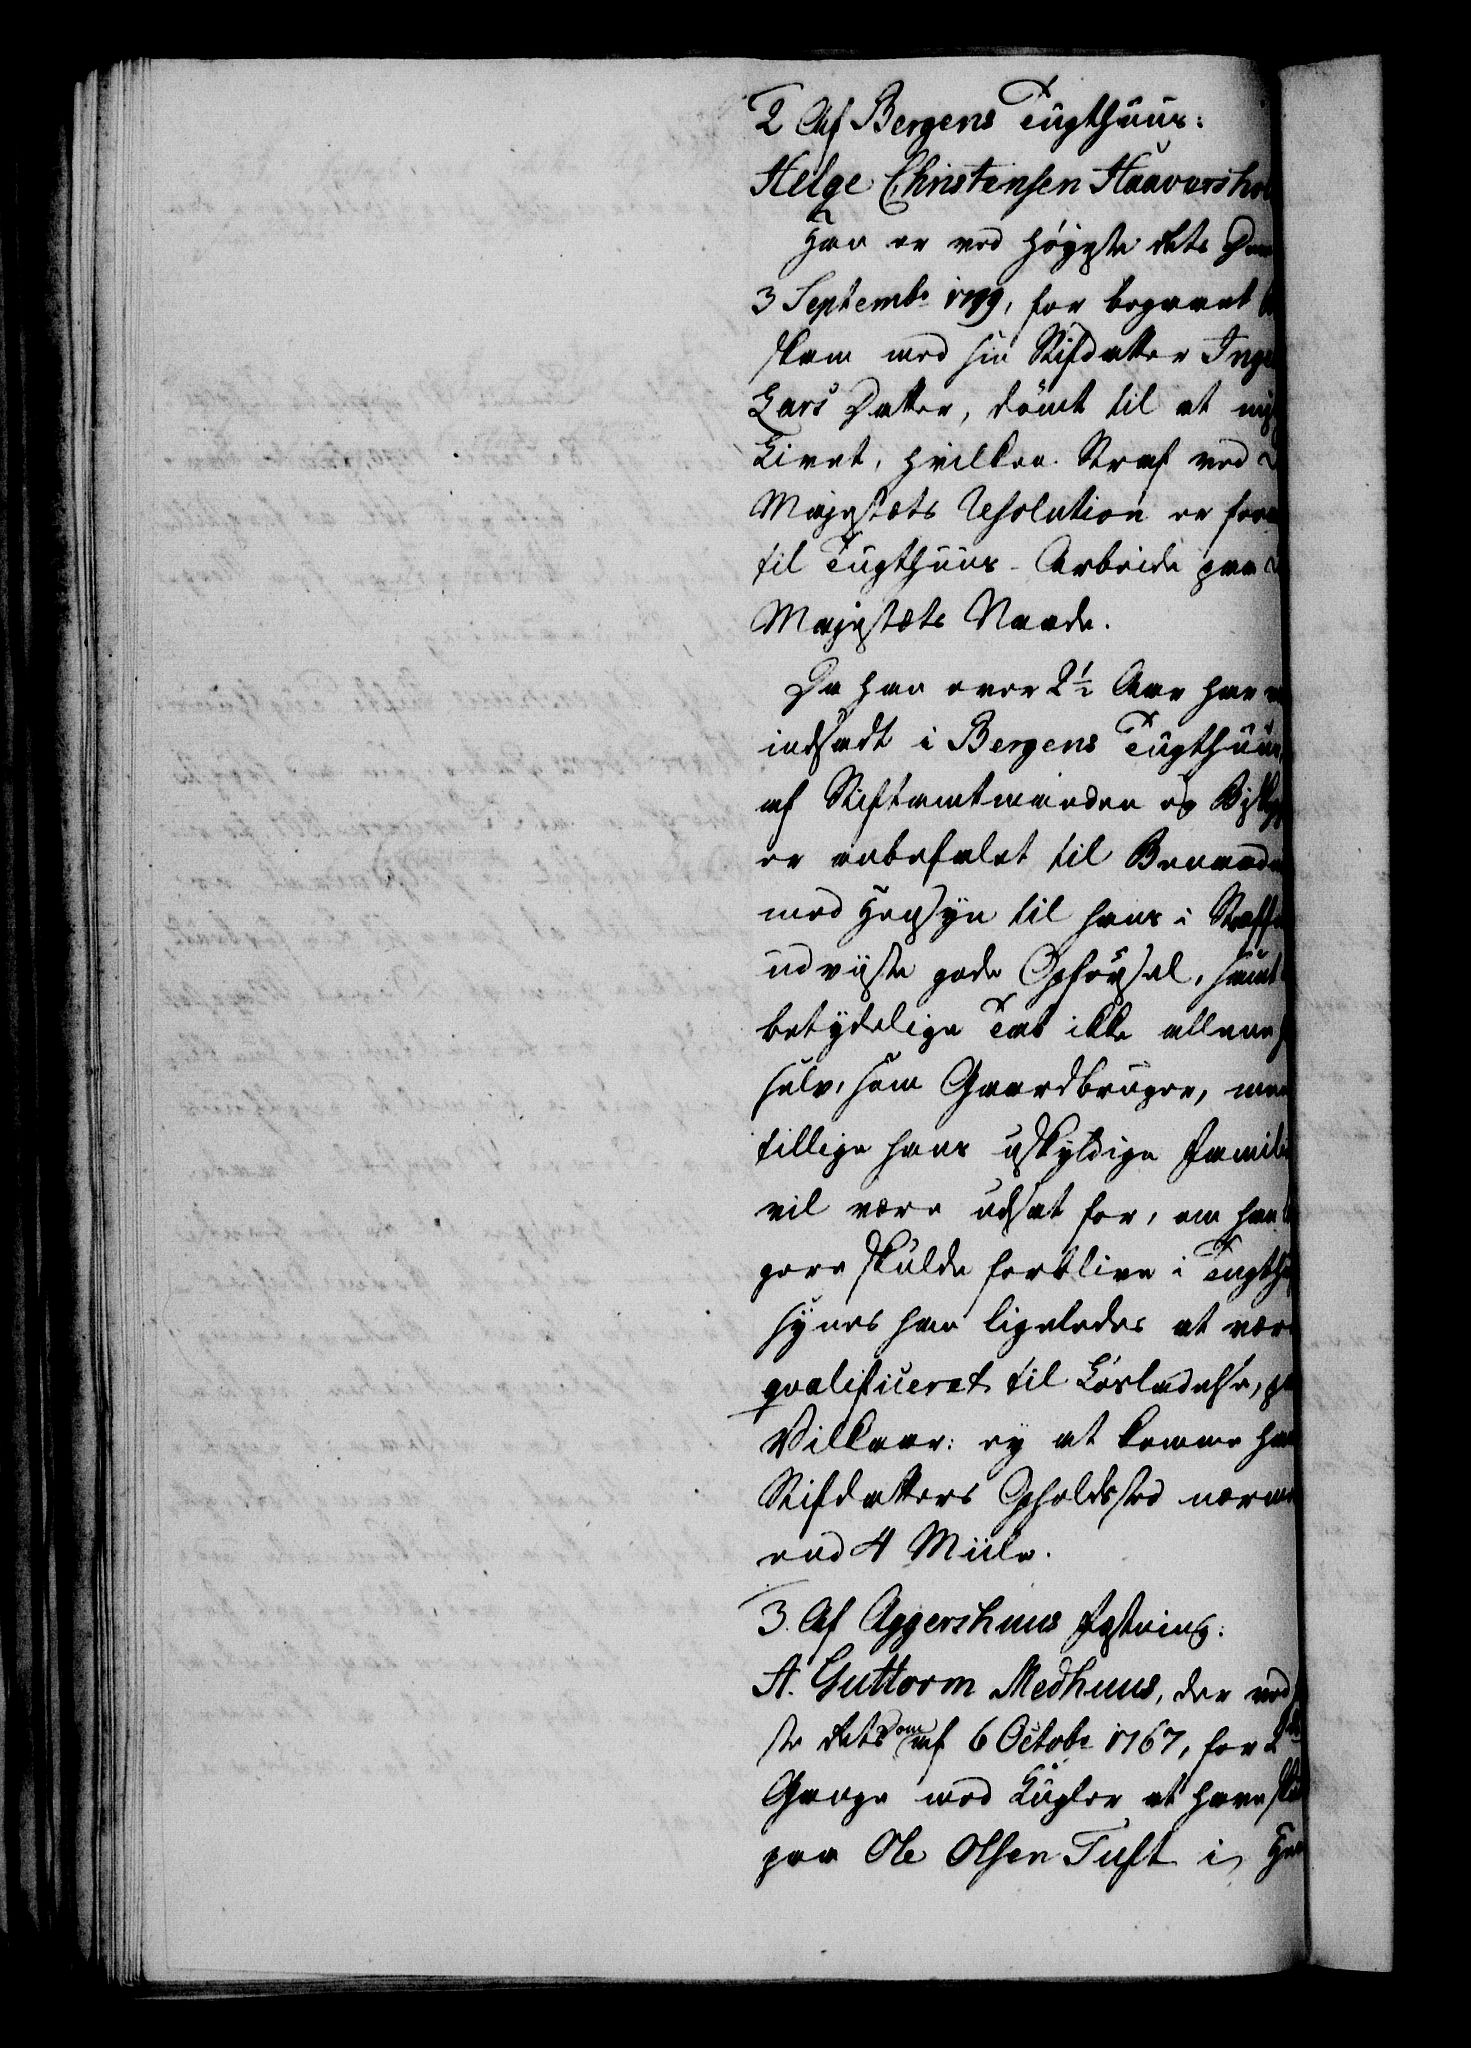 2 Af Bergens Tugthuus:
Helge Christensen Haavarsho
Han er ved Høyeste Rets Dom
3 Septembr 1799, for begaaet
skam med sin Stifdatter Inge
Lars Datter, dømt til at
Livet, hvilken Straf ved
Majestæts Resolution er for
til Tugthuus-Arbeide paa
Majestæts Naade.
Da han over 2½ Aar har
indsadt i Bergens Tugthuus,
af Stiftamtmanden og Biskop
er anbefalet til Benaad
med Hensyn til hans i Straff
udviiste gode Opførsel, samt
betydelige Tab ikke allene
selv, som Gaardbruger, men
tillige hans uskyldige Famili
vil være udsat for, om han
gere skulde forblive i Tugth
synes han ligeledes at være
qvalificeret til Løsladelse, paa
Vilkaar: ey at komme hans
Stifdatters Opholdssted nærme
end 4 Miile.
3. Af Aggershuus Fæstning:
A. Guttorm Medhuus, der ved
ste Rets Dom af 6 Octobr 1767, for 2de
Gange med Kugler at have skud
paa Ole Olsen Tuft i